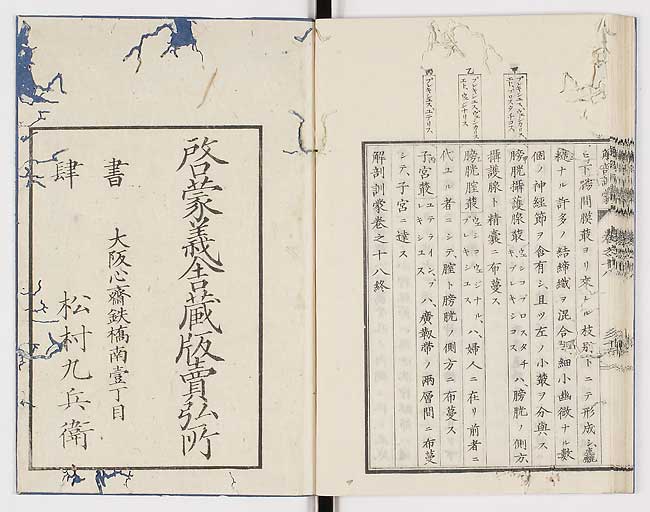 甲
プレキシュス、ヴェシカリス
乙
プレキシュス、ヴァジナリス
丙
プレキシュス、ユテリス
ヒ下膓間膜叢ヨリ來
枝別
ニテ形成シ
ナル許多ノ結締織ヲ混合
細小幽微ナル數
個ノ神經節ヲ含有シ且ツ左ノ小叢ヲ分與ス
膀胱攝護腺叢
ハ膀胱ノ側方
攝護腺ト精囊ニ布蔓ス
膀胱腟叢
ハ婦人ニ在リ前者ニ
代ユル者ニシテ、腟ト膀胱ノ側方ニ布蔓ス
子宮叢
ハ廣靱帶ノ兩層間ニ布蔓
シテ、子宮ニ達ス
解剖訓蒙卷之十八終
啓蒙義舍藏版賣弘所
書肆
大阪心齋鉄橋南壹丁目
松村九兵衛